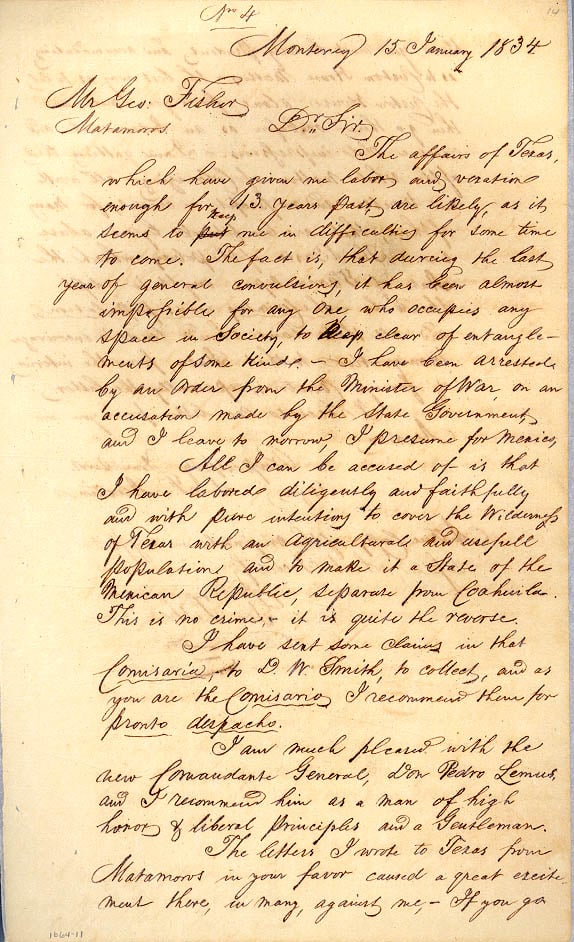 No 4
14
Monterrey 15. January 1834
Mr Geo: Fisher
Matamoros.
Dr. Sir.
The affairs of Texas,
which have given me labor and vexation
enough for 13 years past, are likely, as it
keep
seems to put me in difficulties for some time
to come. The fact is, that dureing the last
year of general convulsions, it has been almost
impossible for any One, who occupies any
space in Society, to keep clear of entangle-
ments of some kind. - I have been arrested
by an order from the Minister of War, on an
accusation made by the State Government,
and I leave to morrow, I presume for Mexico,
All I can be accused of is that
I have labored diligently and faithfully
and with pure intentions to cover the Wilderness
of Texas with an Agricultural and usefull
population and to make it a State of the
Mexican Republic, separate from Coahuila.
This is no crime, - it is quite the reverse.
I have sent some claims in that
Comisaria, to D. W. Smith, to collect, and as
you are the Comisario, I recommend them for
pronto despacho.
I am much pleased with the
new Comandante General, Don Pedro Lemus,
and I recommend him as a man of high
honor & liberal principles and a Gentleman.
The letters I wrote to Texas from
Matamoros in your favor caused a great excite
ment there, in many, against me, - If you go
1664-11